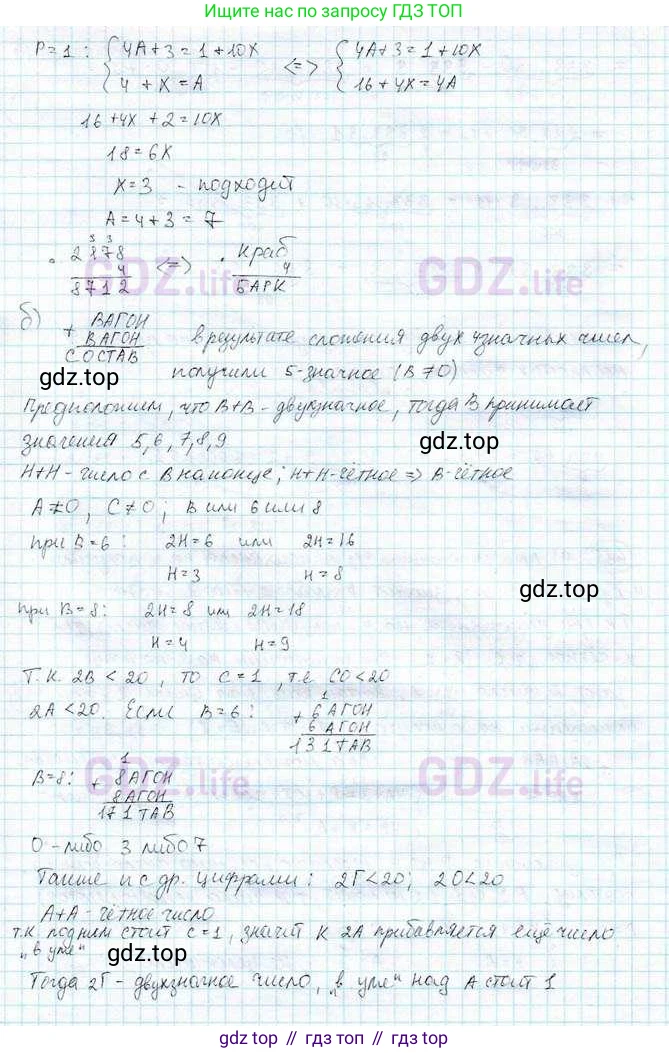 Ищите ответы по запросу ГДЗ ТОП
P=1 : { 4A+3=1+10X <=> { 4A+3=1+10X
4 + X = A 16+4X=4A
16+4X+2=10X
18=6X
X=3 - подходит
A=4+3=7
3 3
2178 <=> краб
4 4
8712 БАРК
GDZ.life GDZ.life
б) + ВАГОН
ВАГОН в результате сложения двух 4значных чисел,
СОСТАВ
получили 5-значное (В≠0)
gdz.top
Предположим, что В+В - двухзначное, тогда В принимает
значения 5,6,7,8,9
gdz.top
Н+Н - число с В на конце; Н+Н-чётное => В-чётное
А≠0, С≠0; В или 6 или 8
при В=6: 2Н=6 или 2Н=16
Н=3 Н=8
gdz.top
при В=8: 2Н=8 или 2Н=18
Н=4 Н=9
Т.к. 2В<20, то С=1, т.е. СО<20
2А<20. Если В=6: 1
+ 6АГОН
6АГОН
131ТАВ
1
В=8: + 8АГОН
8АГОН
171ТАВ
GDZ.life GDZ.life
О-либо 3 либо 7
Также и с др. цифрами: 2Г<20; 2О<20
А+А-чётное число
т.к. под ним стоит с=1, значит к 2А прибавляется ещё число
"в уме"
gdz.top
Тогда 2Г-двухзначное число, "в уме" над А стоит 1
gdz.top // гдз топ // gdz.top // гдз топ // gdz.top